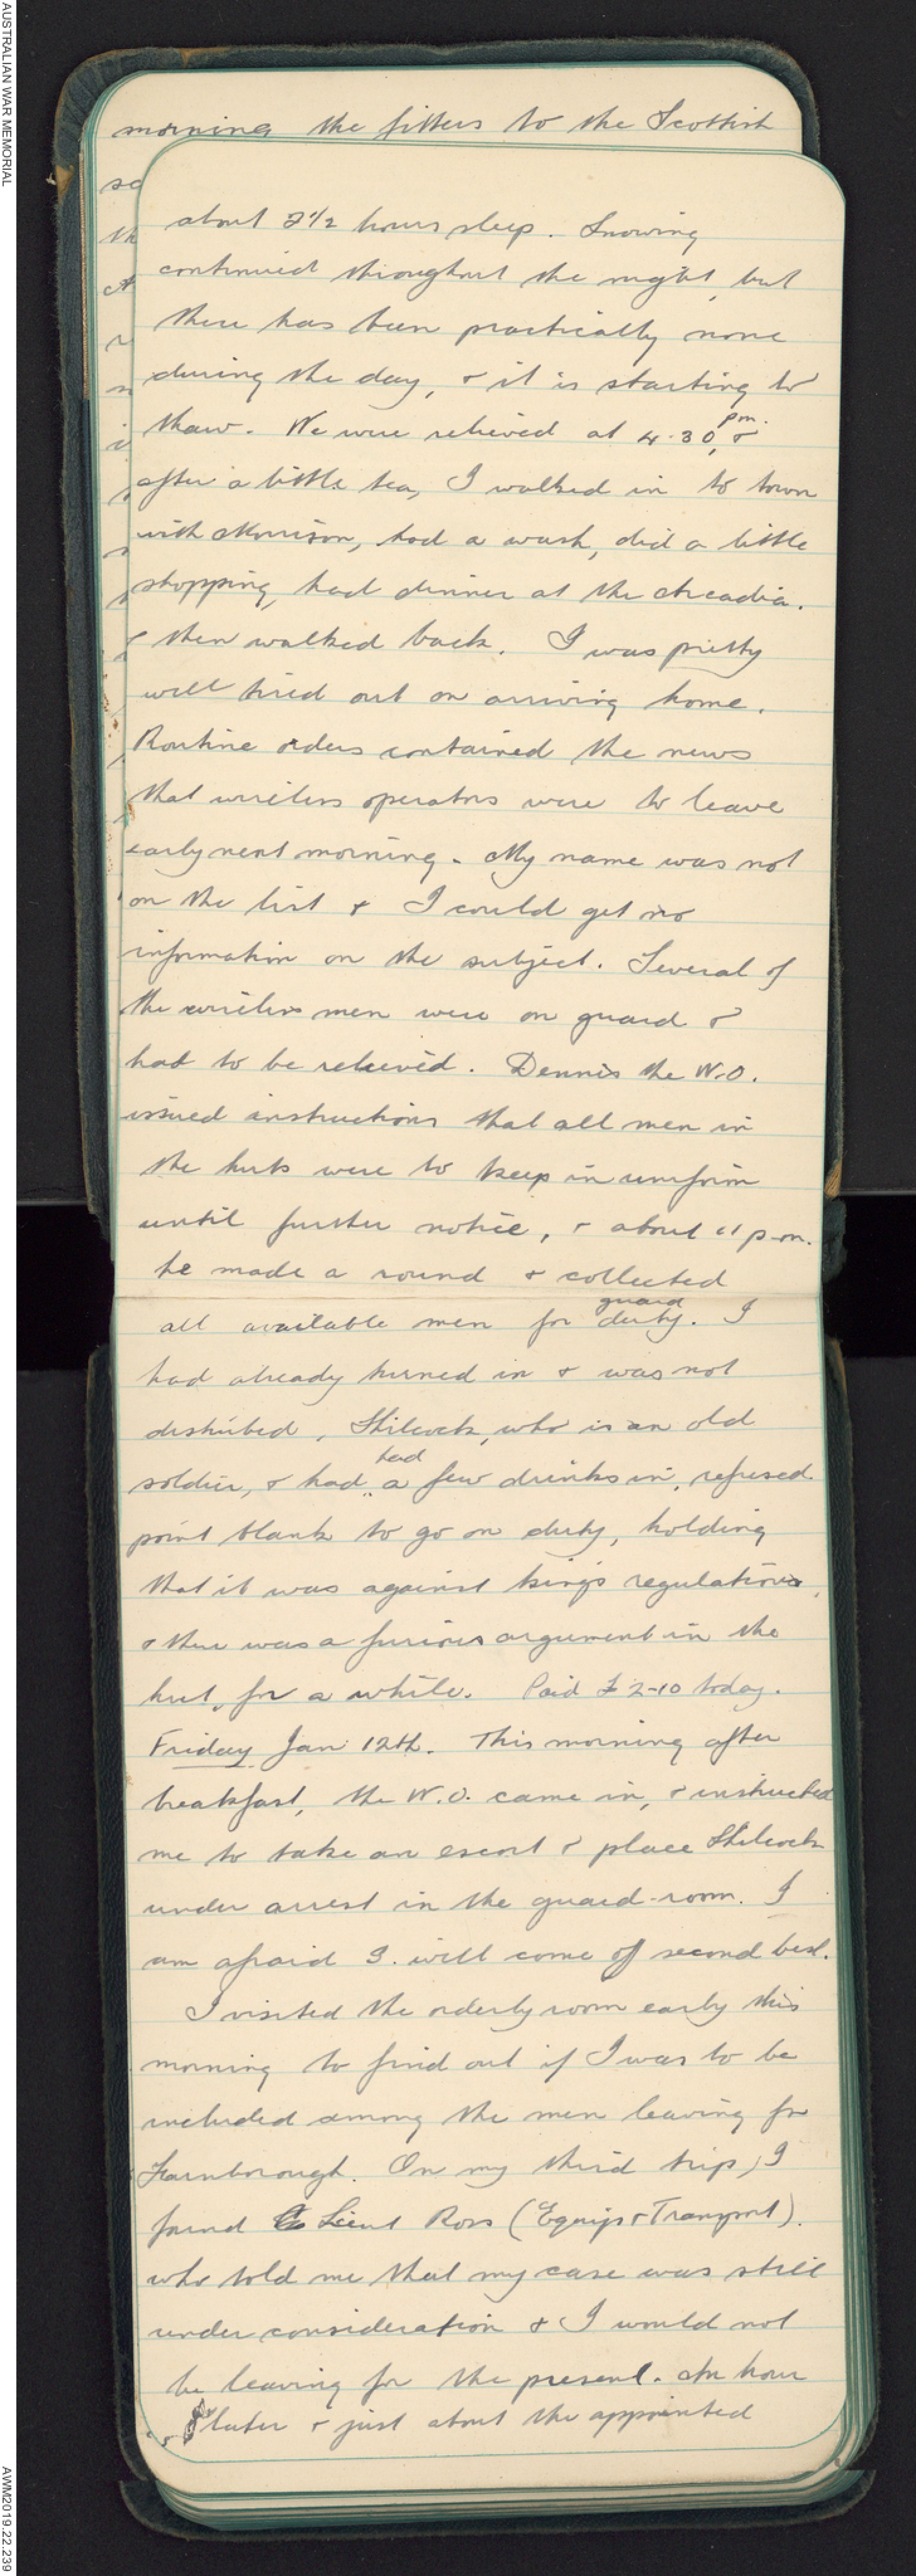 AUSTRALIAN WAR MEMORIAL
morning the fitters to the Scottish
about 2½ hours sleep. Snowing
continued throughout the night, but
there has been practically none
during the day, & it is starting to
thaw. We were relieved at 4.30 pm, &
after a little tea, I walked in to town
with Morrison, had a wash, did a little
shopping, had dinner at the Arcadia.
& then walked back. I was pretty
well tired out on arriving home.
Routine orders contained the news
that wireless operators were to leave
early next morning. My name was not
on the list & I could get no
information on the subject. Several of
the wireless men were on guard &
had to be relieved. Dennis the W.O.
issued instructions that all men in
the huts were to keep in uniform
until further notice, & about 11 p.m.
he made a round & collected
all available men for guard duty. I
had already turned in & was not
disturbed, Shilcock, who is an old
soldier, & had had a few drinks in, refused
point blank to go on duty, holding
that it was against king's regulations,
& there was a furious argument in the
hut, for a while. Paid £2-10 today.
Friday Jan 12th. This morning after
breakfast, the W.O. came in, & instructed
me to take an escort & place Shilcock
under arrest in the guard-room. I
am afraid S. will come off second best.
I visited the orderly room early this
morning to find out if I was to be
included among the men leaving for
Farnborough. On my third trip, I
found Lieut Ross (Equip & Transport).
who told me that my case was still
under consideration & I would not
be leaving for the present. An hour
later & just about the appointed
AWM2019.22.239